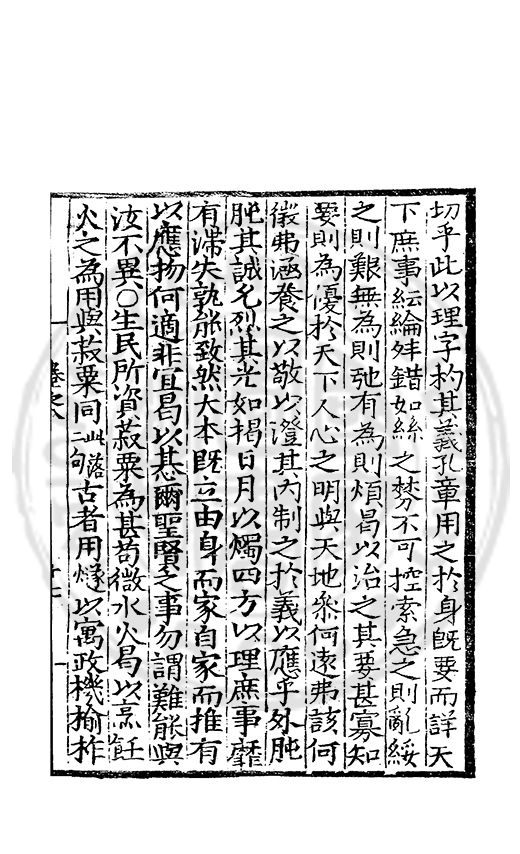 切乎此以理字杓其義孔章用之於身既要而詳天
下庶事紜綸舛錯如絲之棼不可控索急之則亂綏
之則艱無為則弛有為則煩曷以治之其要甚寡知
要則為優於天下人心之明與天地叅何遠弗該何
微弗涵養之以敬以澄其內制之於義以應乎外肫
肫其誠允烈其光如揭日月以燭四方以理庶事靡
有滯失孰能致然大本既立由身而家自家而推有
以應物何適非宜曷以惎爾聖賢之事勿謂難能與
汝不異○生民所資菽粟為甚苟微水火曷以烹飪
火之為用與菽粟同此落二句古者用燧以寓政機揄柞
卷之八